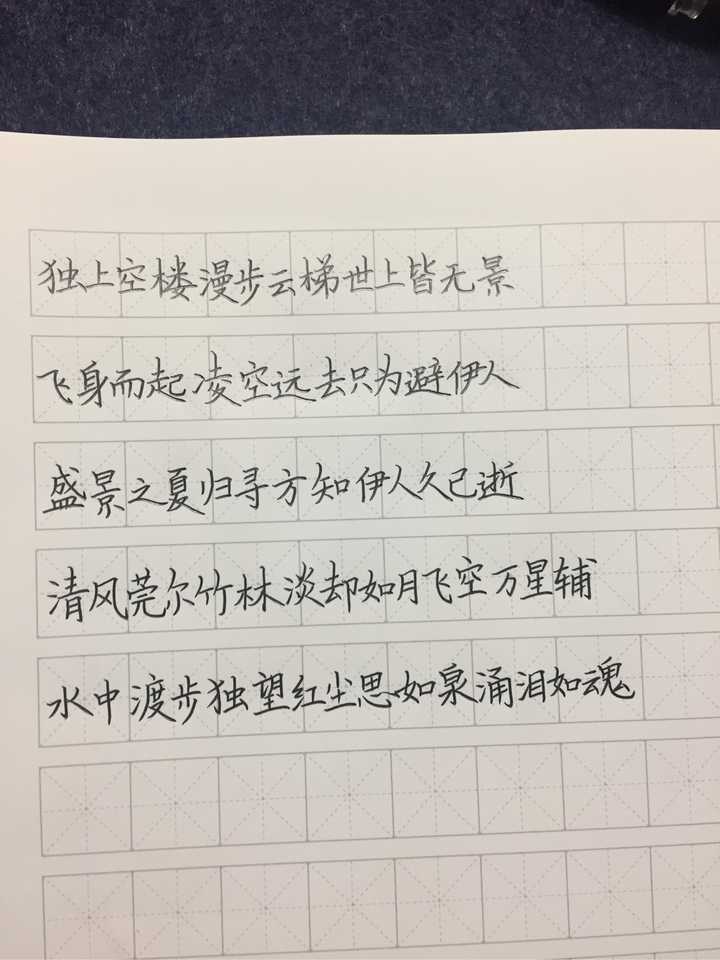 独上空楼漫步云梯世上皆无景
飞身而起凌空远去只为避伊人
盛景之夏归寻方知伊人久已逝
清风莞尔竹林淡却如月飞空万星辅
水中渡步独望红尘思如泉涌泪如魂